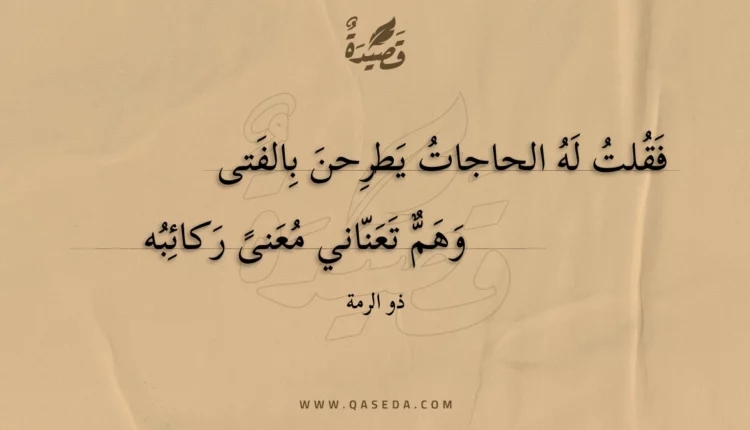 قَصِيْدَةٌ
فَقُلتُ لَهُ الحاجاتُ يَطرِحنَ بِالفَتى
وَهَمٌّ تَعَنّاني مُعَنىً رَكائِبُه
ذو الرمة
WWW.QASEDA.COM